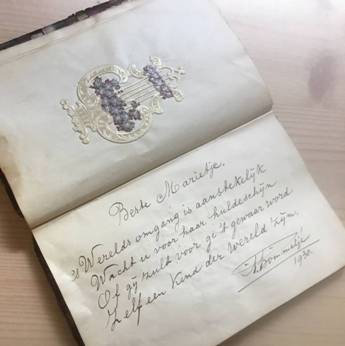 Beste Marietje.
's Werelds omgang is aanstekelijk
Wacht u voor haar huldeschijn
Of gij zult voor ge 't gewaar word
Zelf een kind der wereld zijn.
1930.